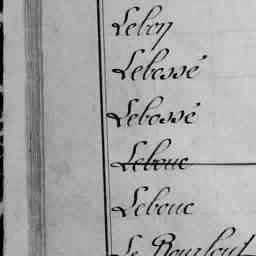 Lebon
Lebossé
Lebossé
Lebouc
Lebouc
Le Bourlout